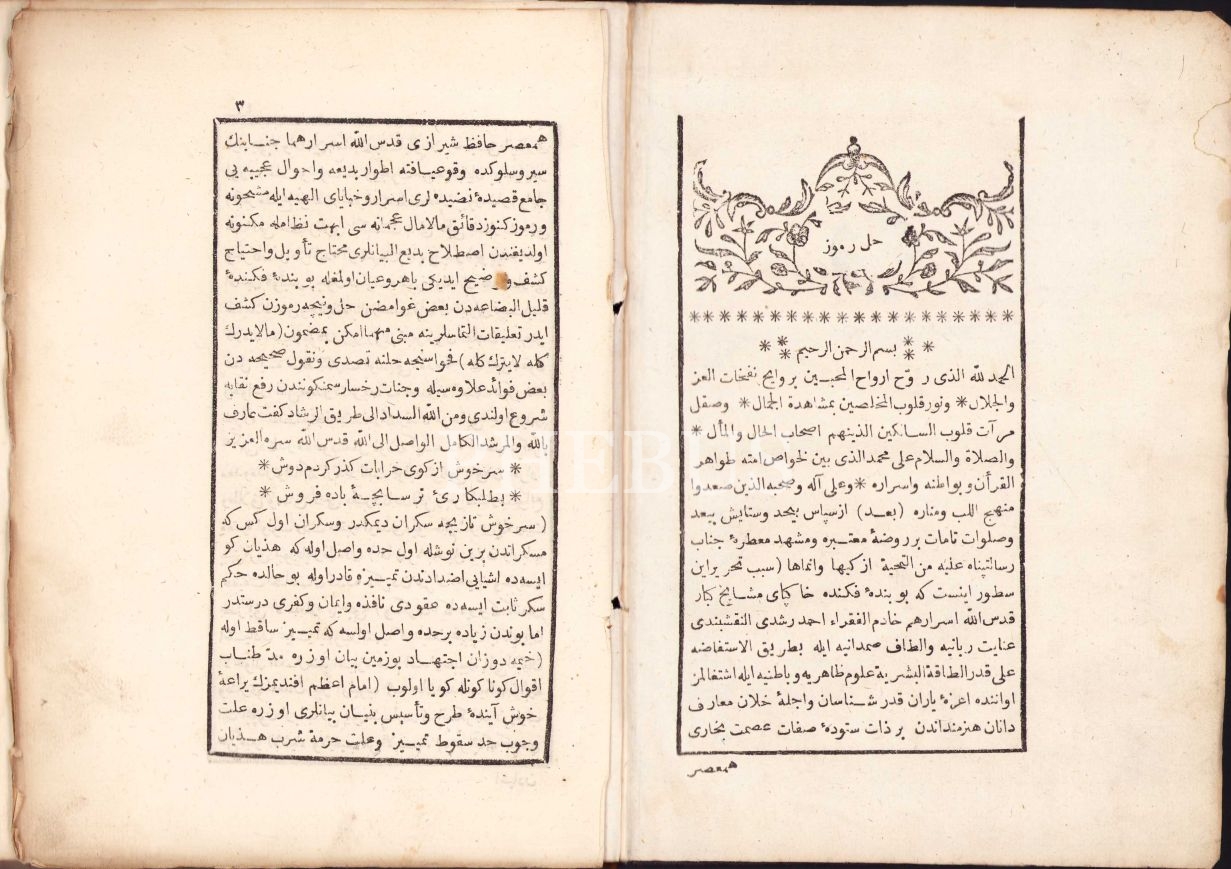 حل رموز
بسم الرحمن الرحيم
الحمد لله الذى روّح ارواح المحبين بروايح نفخات العز
والجلال * ونور قلوب المخلصين بمشاهدة الجمال * وصقل
مرآت قلوب السالكين الذينهم اصحاب الحال والمأل *
والصلاة والسلام على محمد الذى بين لخواص امته ظواهر
القرأن وبواطنه واسراره * وعلى آله وصحبه الذين صعدوا
منهج اللب ومناره (بعد) ازسپاس بيحد وستايش بيعد
وصلوات تامات بر روضۀ معتبره ومشهد معطرۀ جناب
رسالتپناه عليه من التحية ازكيها واتماها (سبب تحريراين
سطور اينست كه بو بندۀ فكنده خاكپاى مشايخ كبار
قدس الله اسرارهم خادم الفقراء احمد رشدى النقشبندى
عنايت ربانيه والطاف صمدانيه ايله بطريق الاستفاضه
على قدر الطاقة البشرية علوم ظاهريه وباطنيه ايله اشتغالمز
اواننده اعزۀ ياران قدرشناسان واجلۀ خلان معارف
دانان هنرمنداندن بر ذات ستودۀ صفات عصمت بخارى
همعصر
٣
همعصر حافظ شيرازى قدس الله اسرارهما جنابنك
سير وسلوكده وقوعيافته اطوار بديعه واحوال عجيبه يى
جامع قصيدۀ نضيده لرى اسرار وخباياى الهيه ايله مشحونه
ورموز كنوز دقائق مالامال عجمانه سى ابهت نظامله مكنونه
اولديغندن اصطلاح بديع البيانلرى محتاج تأويل واحتياج
كشف و ضيح ايديكى باهر وعيان اولمغله بو بندۀ فكندۀ
قليل البضاعه دن بعض غوامضن حل ونيجه رموزن كشف
ايدر تعليقات التماسلرينه مبنى مهما امكن بمضمون (مالا يدرك
كله لا يترك كله) فحواسنجه حلنه تصدى ونقول صحيحه دن
بعض فوائد علاوه سيله وجنات رخسار سمنكونندن رفع نقابه
شروع اولندى ومن الله السداد الى طريق الرشاد كفت عارف
بالله والمرشد الكامل الواصل الى الله قدس الله سره العزيز
* سرخوش از كوى خرابات كذر كردم دوش *
* بطلبكارئ ترسابچۀ باده فروش *
(سرخوش تازيجه سكران ديمكدر وسكران اول كس كه
مسكراتدن برين نوشله اول حده واصل اوله كه هذيان كو
ايسه ده اشيايى اضدادندن تمييزه قادر اوله بو حالده حكم
سكر ثابت ايسه ده عقودى نافذه وايمان وكفرى درستدر
اما بوندن زياده برحده واصل اولسه كه تمييز ساقط اوله
(خيمه دوزان اجتهاد بوزمين بيان اوزره مد طناب
اقوال كونا كونله كويا اولوب (امام اعظم افنديمزك يراعۀ
خوش آيندۀ طرح وتأسيس بنيان بيانلرى اوزره علت
وجوب حد سقوط تمييز وعلت حرمة شرب هذيان